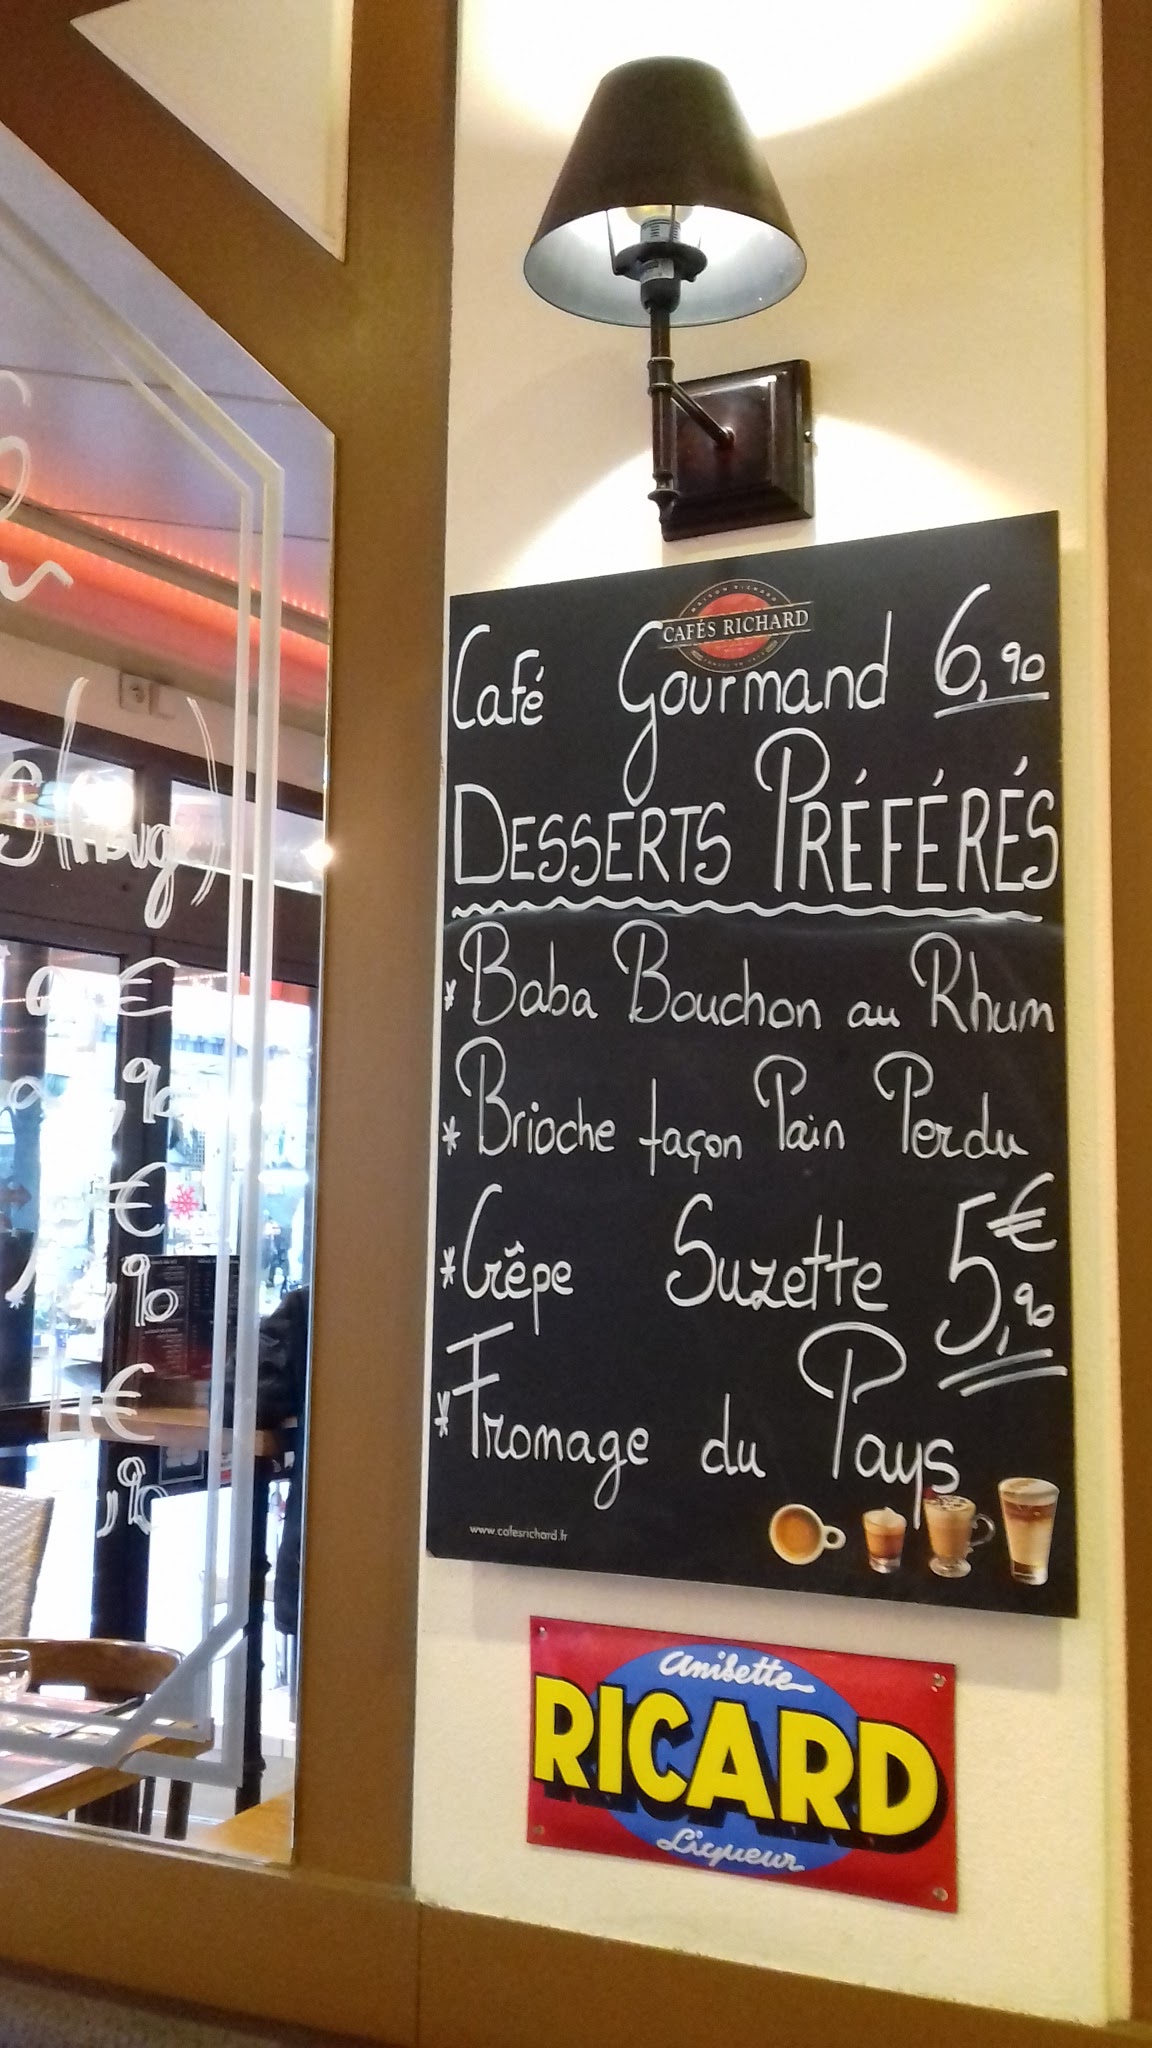 MAISON RICHARD
CAFÉS RICHARD
Café Gourmand 6,90
DESSERTS PRÉFÉRÉS
* Baba Bouchon au Rhum
* Brioche façon Pain Perdu
* Crêpe Suzette 5€,90
* Fromage du Pays
www.cafesrichard.fr
Anisette
RICARD
Liqueur
€
,90
€
,90
€
,90